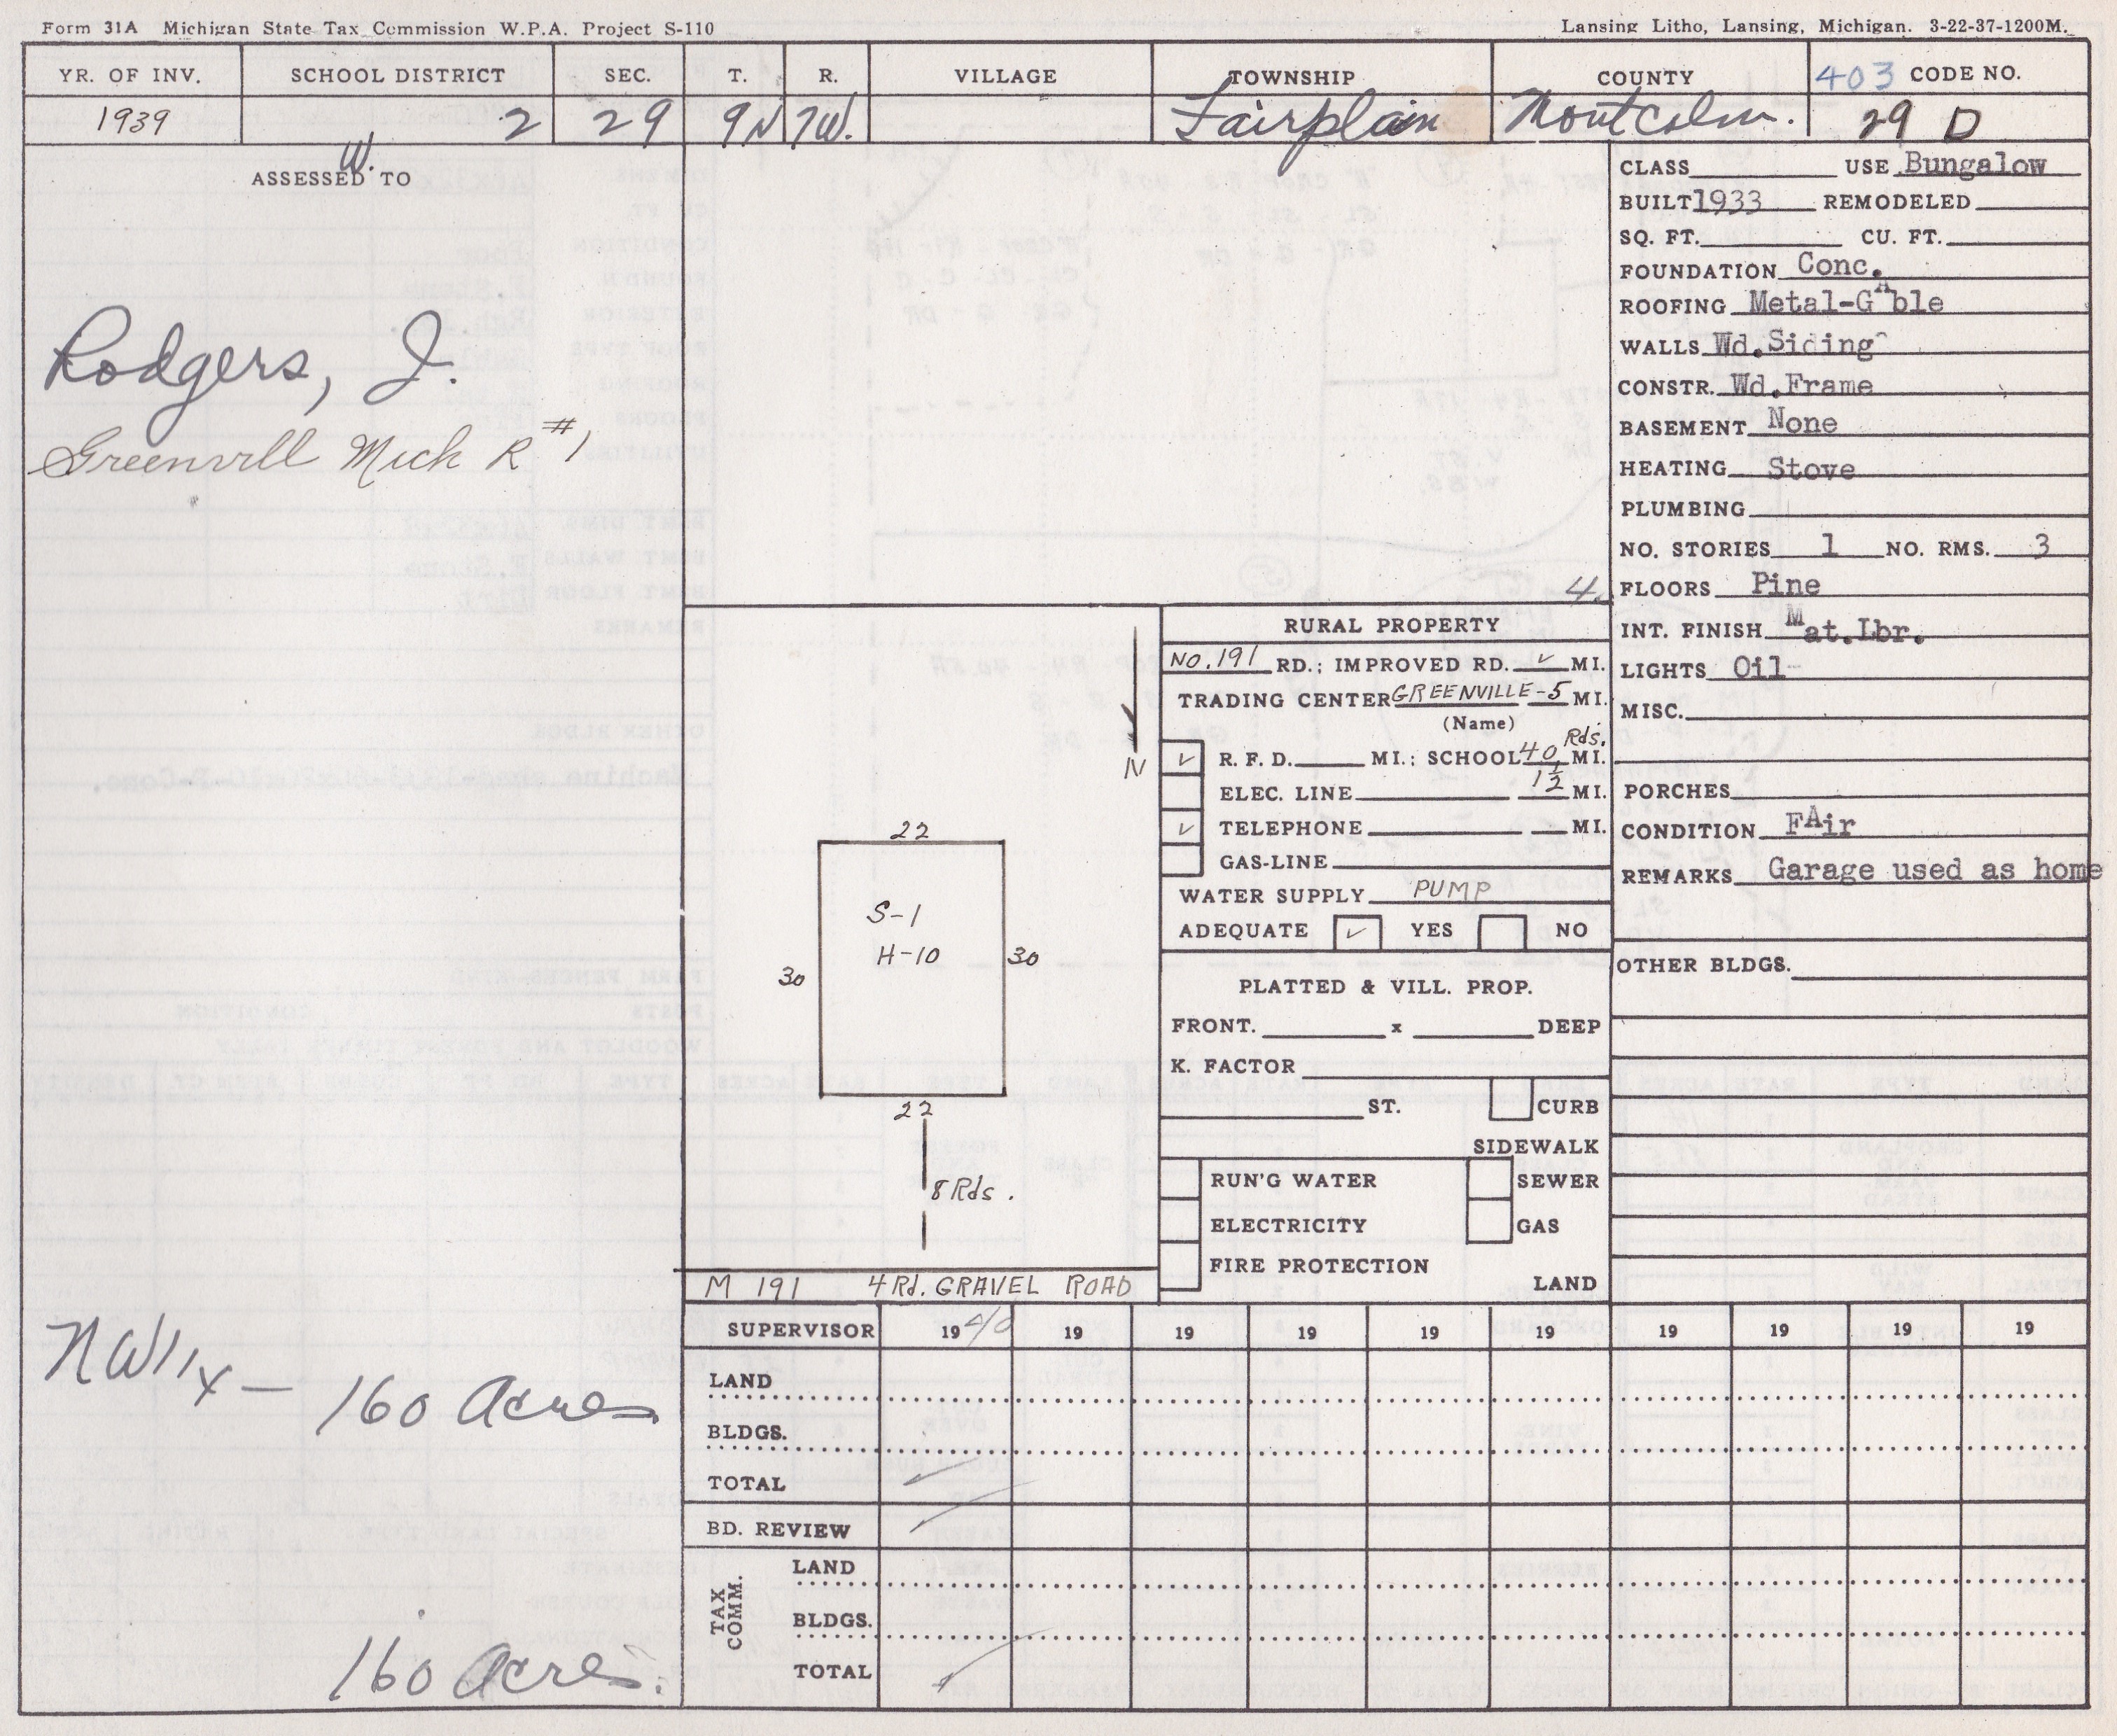 Form 31A Michigan State Tax Commission W.P.A. Project S-110
Lansing Litho, Lansing, Michigan. 3-22-37-1200M.
YR. OF INV. SCHOOL DISTRICT SEC. T. R. VILLAGE TOWNSHIP COUNTY 403 CODE NO.
1939 2 29 9N 7W. Fairplain Montcalm. 29 D
W.
ASSESSED TO
Rodgers, J.
Greenvill Mich R #1
NW1/4 - 160 Acres
160 Acres.
CLASS USE Bungalow
BUILT 1933 REMODELED
SQ. FT. CU. FT.
FOUNDATION Conc.
ROOFING Metal-GAble
WALLS Wd.Siding
CONSTR. Wd.Frame
BASEMENT None
HEATING Stove
PLUMBING
NO. STORIES 1 NO. RMS. 3
4. FLOORS Pine
INT. FINISH Mat.Lbr.
LIGHTS Oil
MISC.
PORCHES
CONDITION FAir
REMARKS Garage used as home
OTHER BLDGS.
N
22
S-1
H-10
30 30
22
8 Rds.
M 191 4 Rd. GRAVEL ROAD
RURAL PROPERTY
No. 191 RD.; IMPROVED RD. ✓ MI.
TRADING CENTER GREENVILLE - 5 MI.
(Name)
✓ R. F. D. MI.; SCHOOL 40 Rds. MI.
ELEC. LINE 1 1/2 MI.
✓ TELEPHONE MI.
GAS-LINE
WATER SUPPLY PUMP
ADEQUATE ✓ YES NO
PLATTED & VILL. PROP.
FRONT. x DEEP
K. FACTOR
ST. CURB
SIDEWALK
RUN'G WATER SEWER
ELECTRICITY GAS
FIRE PROTECTION
LAND
SUPERVISOR 1940 19 19 19 19 19 19 19 19 19
LAND
BLDGS.
TOTAL ✓
BD. REVIEW ✓
TAX COMM.
LAND
BLDGS.
TOTAL ✓